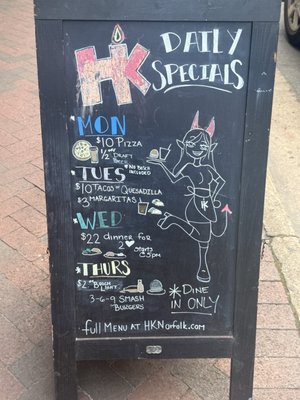 HK
DAILY
SPECIALS
MON
$10 PIZZA
1/2 off
DRAFT
BEER
*NO BEER
INCLUDED
TUES
$10 TACOS or
QUESADILLA
$3 MARGARITAS
WED
$22 dinner for
2
STARTS
@5pm
THURS
$2 BUSCH
LIGHT
3-6-9 SMASH
BURGERS
*DINE
IN ONLY
full MENU at HKNorfolk.com